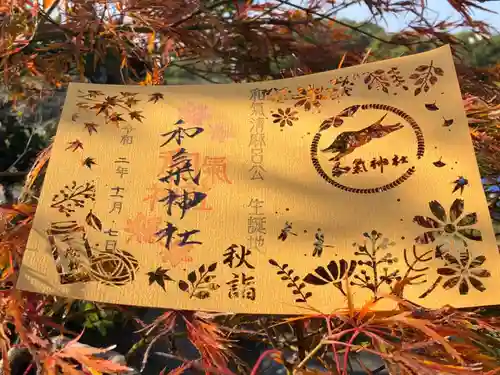 和氣清麻呂公 生誕地
和氣神社
和氣神社
秋詣
令和 二年 十一月 七日